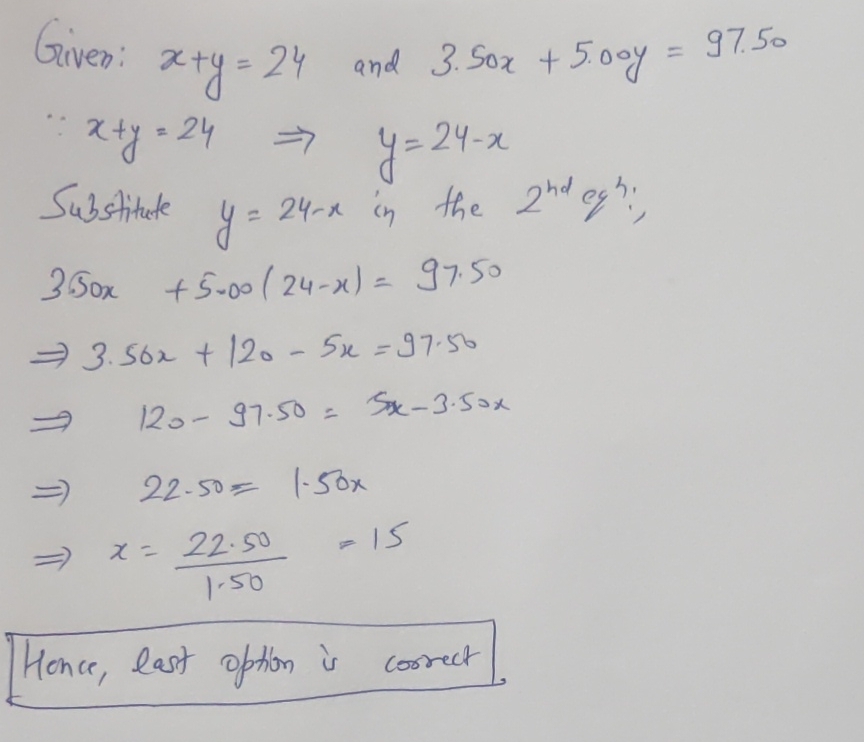 Given: x+y = 24 and 3.50x + 5.00y = 97.50
∵ x+y = 24 ⇒ y = 24-x
Substitute y = 24-x in the 2nd eqn:,
3.50x + 5.00(24-x) = 97.50
⇒ 3.50x + 120 - 5x = 97.50
⇒ 120 - 97.50 = 5x - 3.50x
⇒ 22.50 = 1.50x
⇒ x = 22.50/1.50 = 15
Hence, last option is correct.